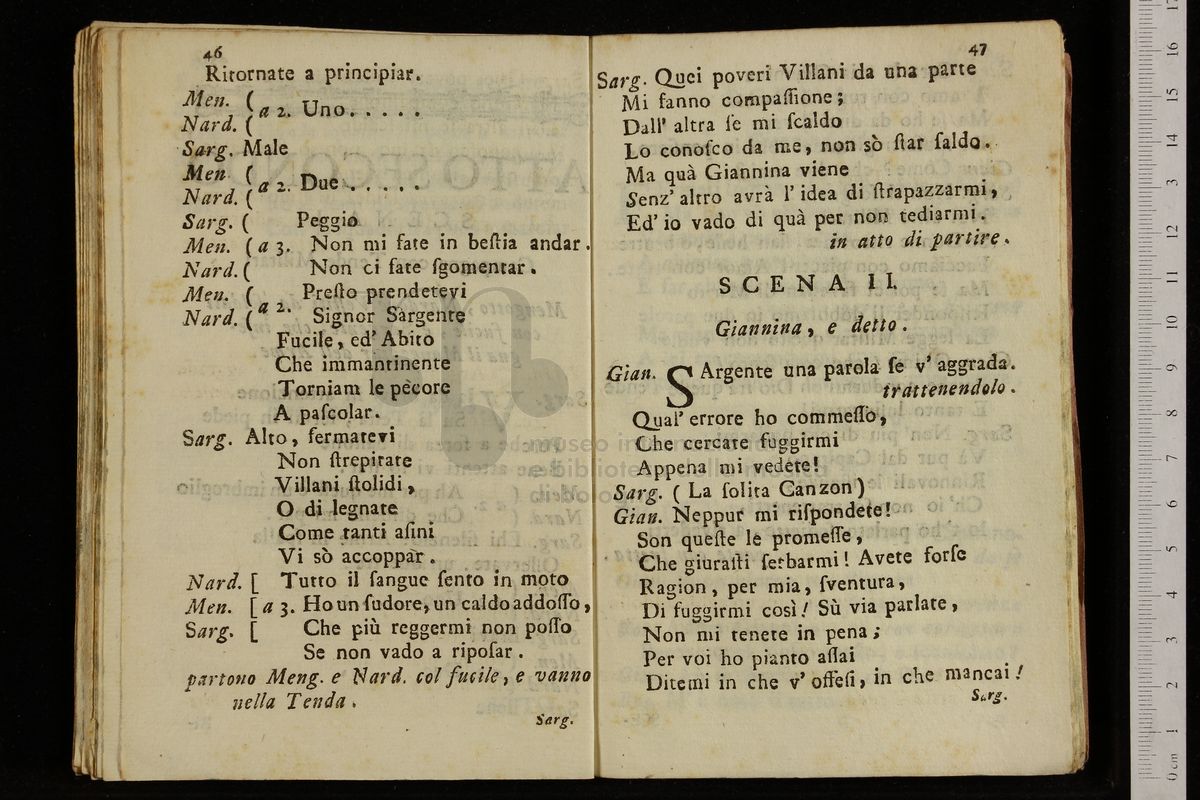 46
Ritornate a principiar.
Men. (
a 2. Uno. . . . .
Nard. (
Sarg. Male
Men (
a 2. Due . . . . .
Nard. (
Sarg. ( Peggio
Men. ( a 3. Non mi fate in beſtia andar.
Nard. ( Non ci fate ſgomentar.
Men. ( Preſto prendetevi
a 2.
Nard. ( Signor Sargente
Fucile, ed' Abito
Che immantinente
Torniam le pècore
A paſcolar.
Sarg. Alto, fermatevi
Non ſtrepitate
Villani ſtolidi,
O di legnate
Come tanti aſini
Vi sò accoppar.
Nard. [ Tutto il ſangue ſento in moto
Men. [ a 3. Ho un ſudore, un caldo addoſſo,
Sarg. [ Che più reggermi non poſſo
Se non vado a ripoſar.
partono Meng. e Nard. col fucile, e vanno
nella Tenda.
Sarg.
47
Sarg. Quei poveri Villani da una parte
Mi fanno compaſſione;
Dall' altra ſe mi ſcaldo
Lo conoſco da me, non sò ſtar ſaldo.
Ma quà Giannina viene
Senz' altro avrà l' idea di ſtrapazzarmi,
Ed' io vado di quà per non tediarmi.
in atto di partire.
SCENA II.
Giannina, e detto.
Gian. SArgente una parola ſe v' aggrada.
trattenendolo.
Qual' errore ho commeſſo,
Che cercate fuggirmi
Appena mi vedete!
Sarg. ( La ſolita Canzon )
Gian. Neppur mi riſpondete!
Son queſte le promeſſe,
Che giuraſti ſerbarmi! Avete forſe
Ragion, per mia, ſventura,
Di fuggirmi così! Sù via parlate,
Non mi tenete in pena;
Per voi ho pianto aſſai
Ditemi in che v' offeſi, in che mancai!
Sarg.